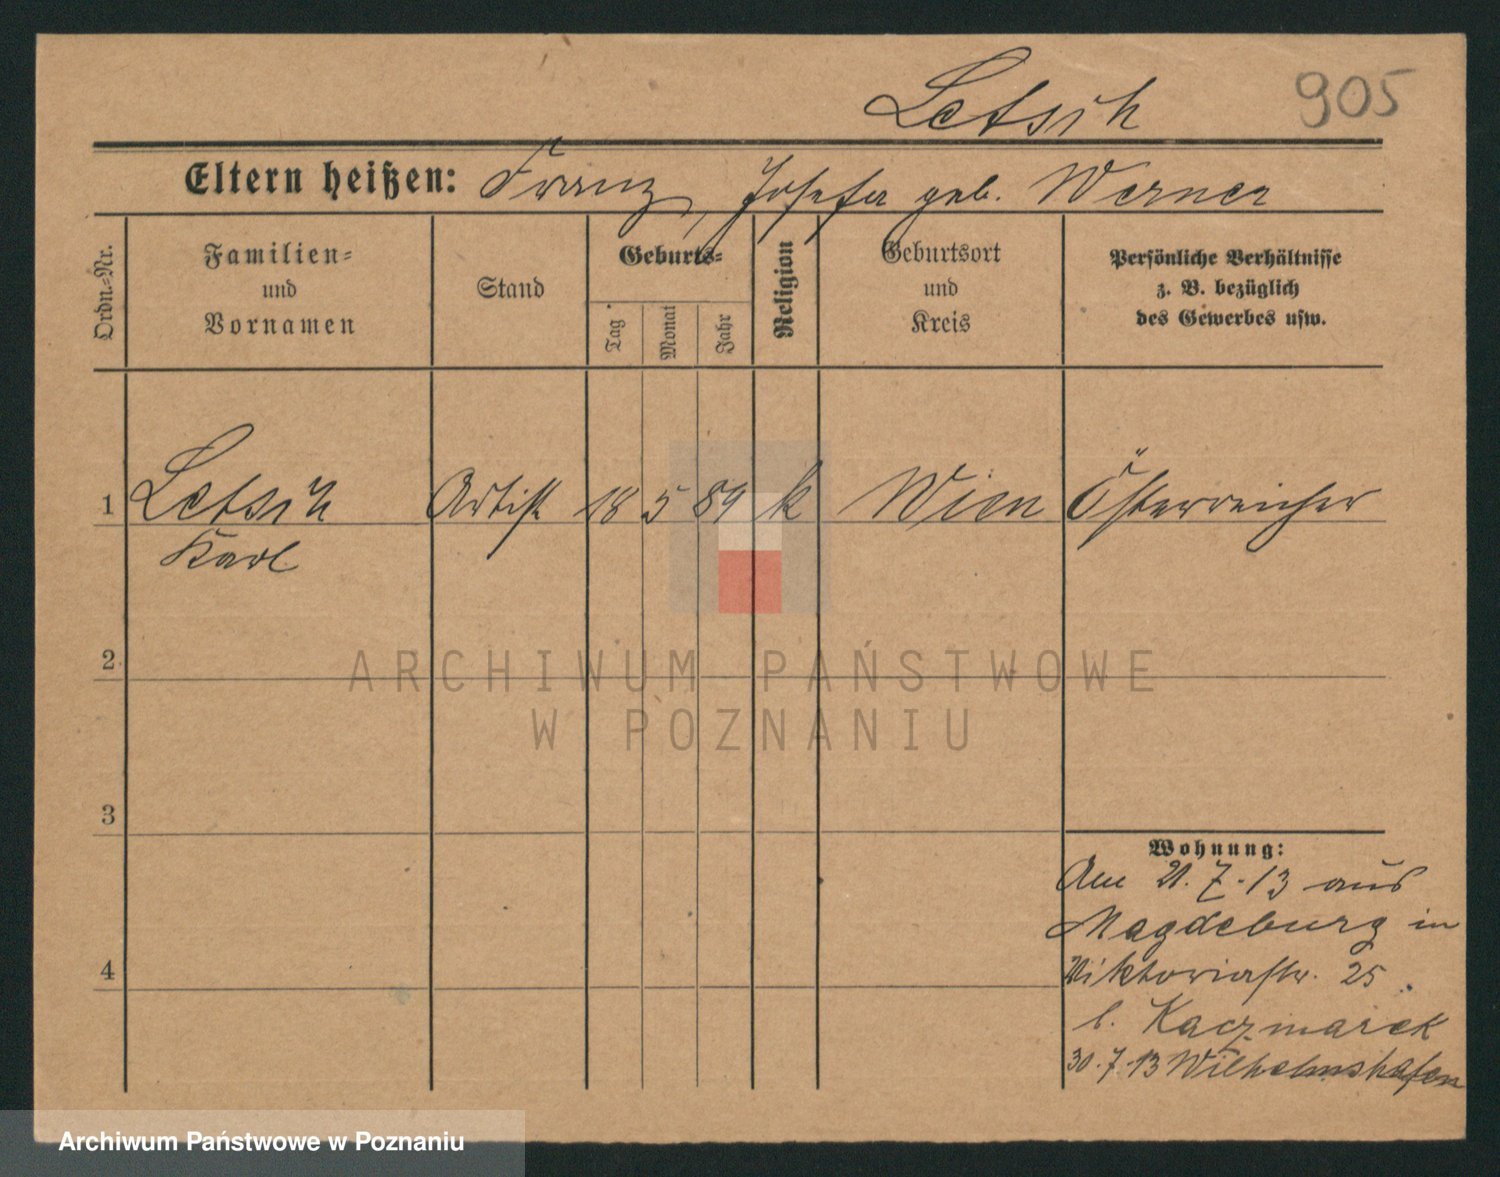 Letsih
905
Eltern heißen: Franz, Josefa geb. Werner
Ordn.-Nr.
Familien-
und
Vornamen
Stand
Geburts-
Tag
Monat
Jahr
Religion
Geburtsort
und
Kreis
Persönliche Verhältnisse
z. B. bezüglich
des Gewerbes usw.
1 Letsih Artist 18 5 89 k Wien Österreicher
Karl
2
3
4
Wohnung:
Am 21. 7. 13 aus
Magdeburg in
Viktoriastr. 25.
b. Kaczmarek
30. 7. 13 Wilhelmshafen
ARCHIWUM PAŃSTWOWE
W POZNANIU
Archiwum Państwowe w Poznaniu